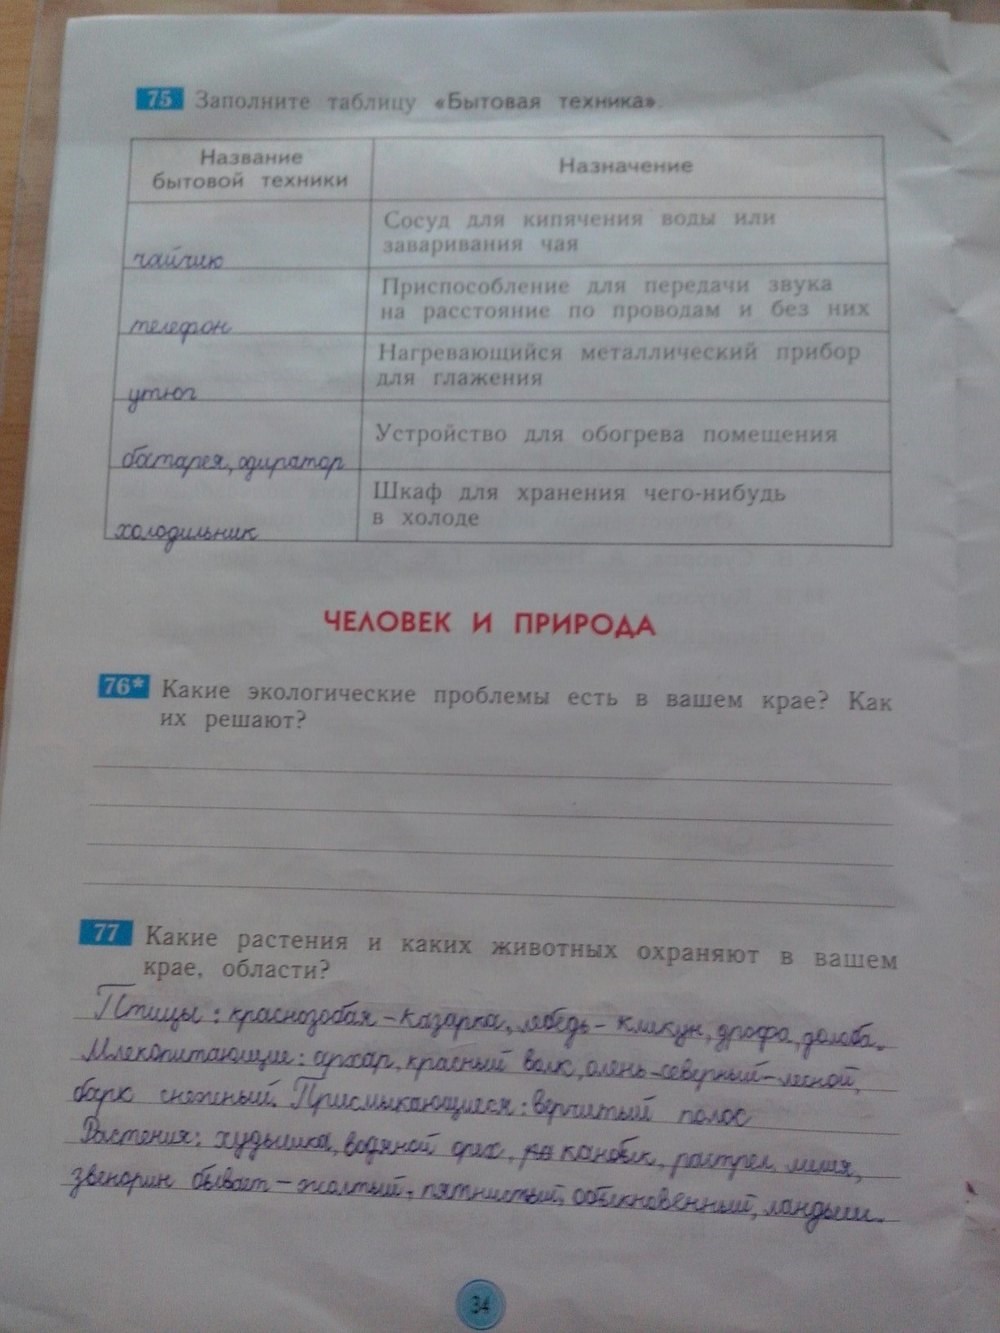 75 Заполните таблицу «Бытовая техника».
Название бытовой техники
Назначение
чайчик
Сосуд для кипячения воды или
заваривания чая
телефон
Приспособление для передачи звука
на расстояние по проводам и без них
утюг
Нагревающийся металлический прибор
для глажения
батарея, одиратор
Устройство для обогрева помещения
холодильник
Шкаф для хранения чего-нибудь
в холоде
ЧЕЛОВЕК И ПРИРОДА
76* Какие экологические проблемы есть в вашем крае? Как
их решают?
77 Какие растения и каких животных охраняют в вашем
крае, области?
Птицы: краснозобая-казарка, лебедь-кликун, дрофа,
Млекопитающие: архар, красный волк, олень-северный-лесной,
барк снежный. Присмыкающиеся: верчитый полос
Растения: худышка, водяной орех,
бывает-жолтый, пятнистый, обыкновенный, ландыш.
34